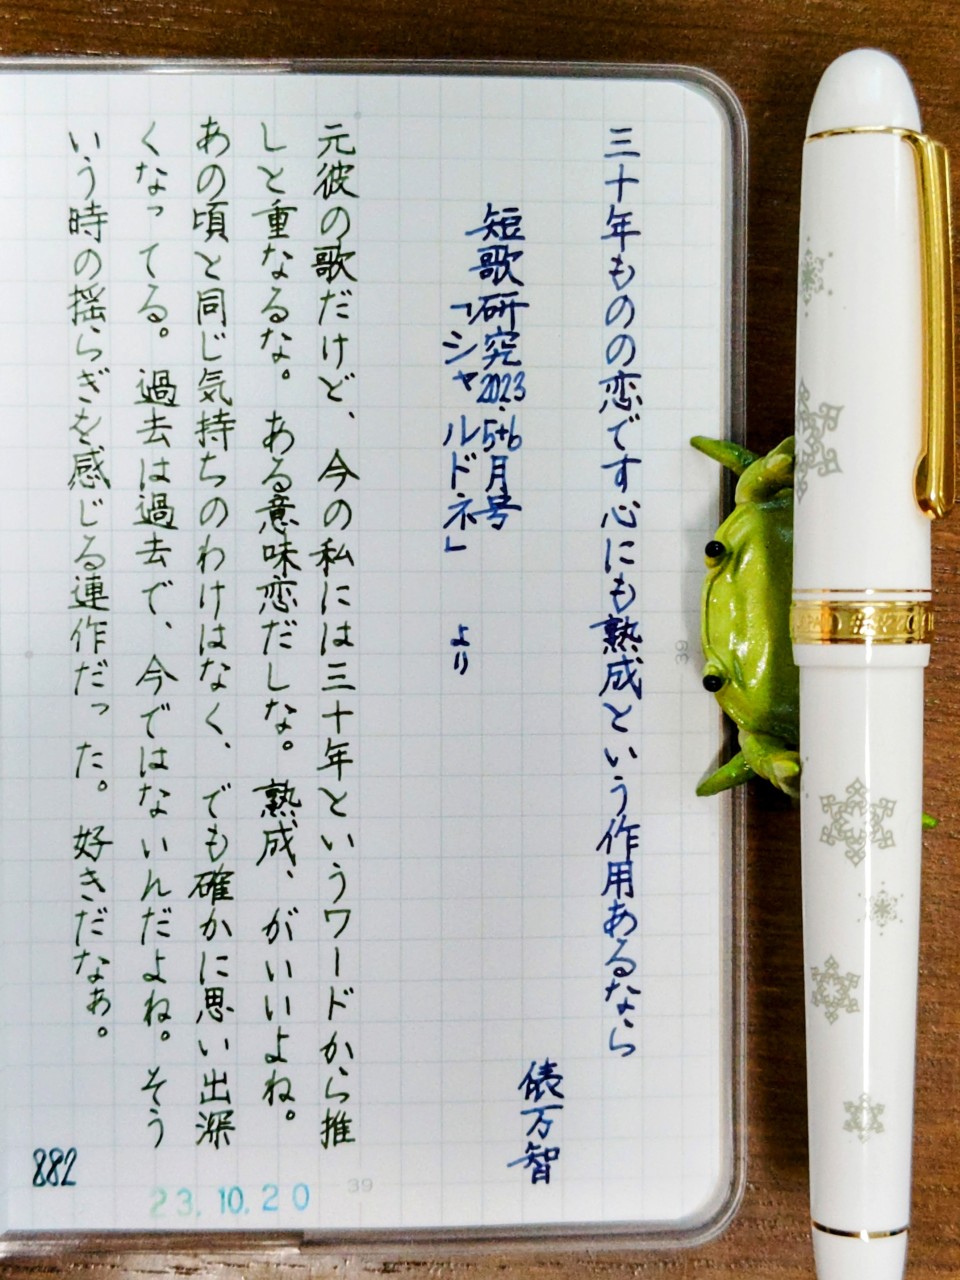 三十年ものの恋です心にも熟成という作用あるなら
俵万智
短歌研究2023.5+6月号
「シャルドネ」 より
元彼の歌だけど、今の私には三十年というワードから推
しと重なるな。ある意味恋だしな。熟成、がいいよね。
あの頃と同じ気持ちのわけはなく、でも確かに思い出深
くなってる。過去は過去で、今ではないんだよね。そう
いう時の揺らぎを感じる連作だった。好きだなぁ。
882
23.10.20
39
39